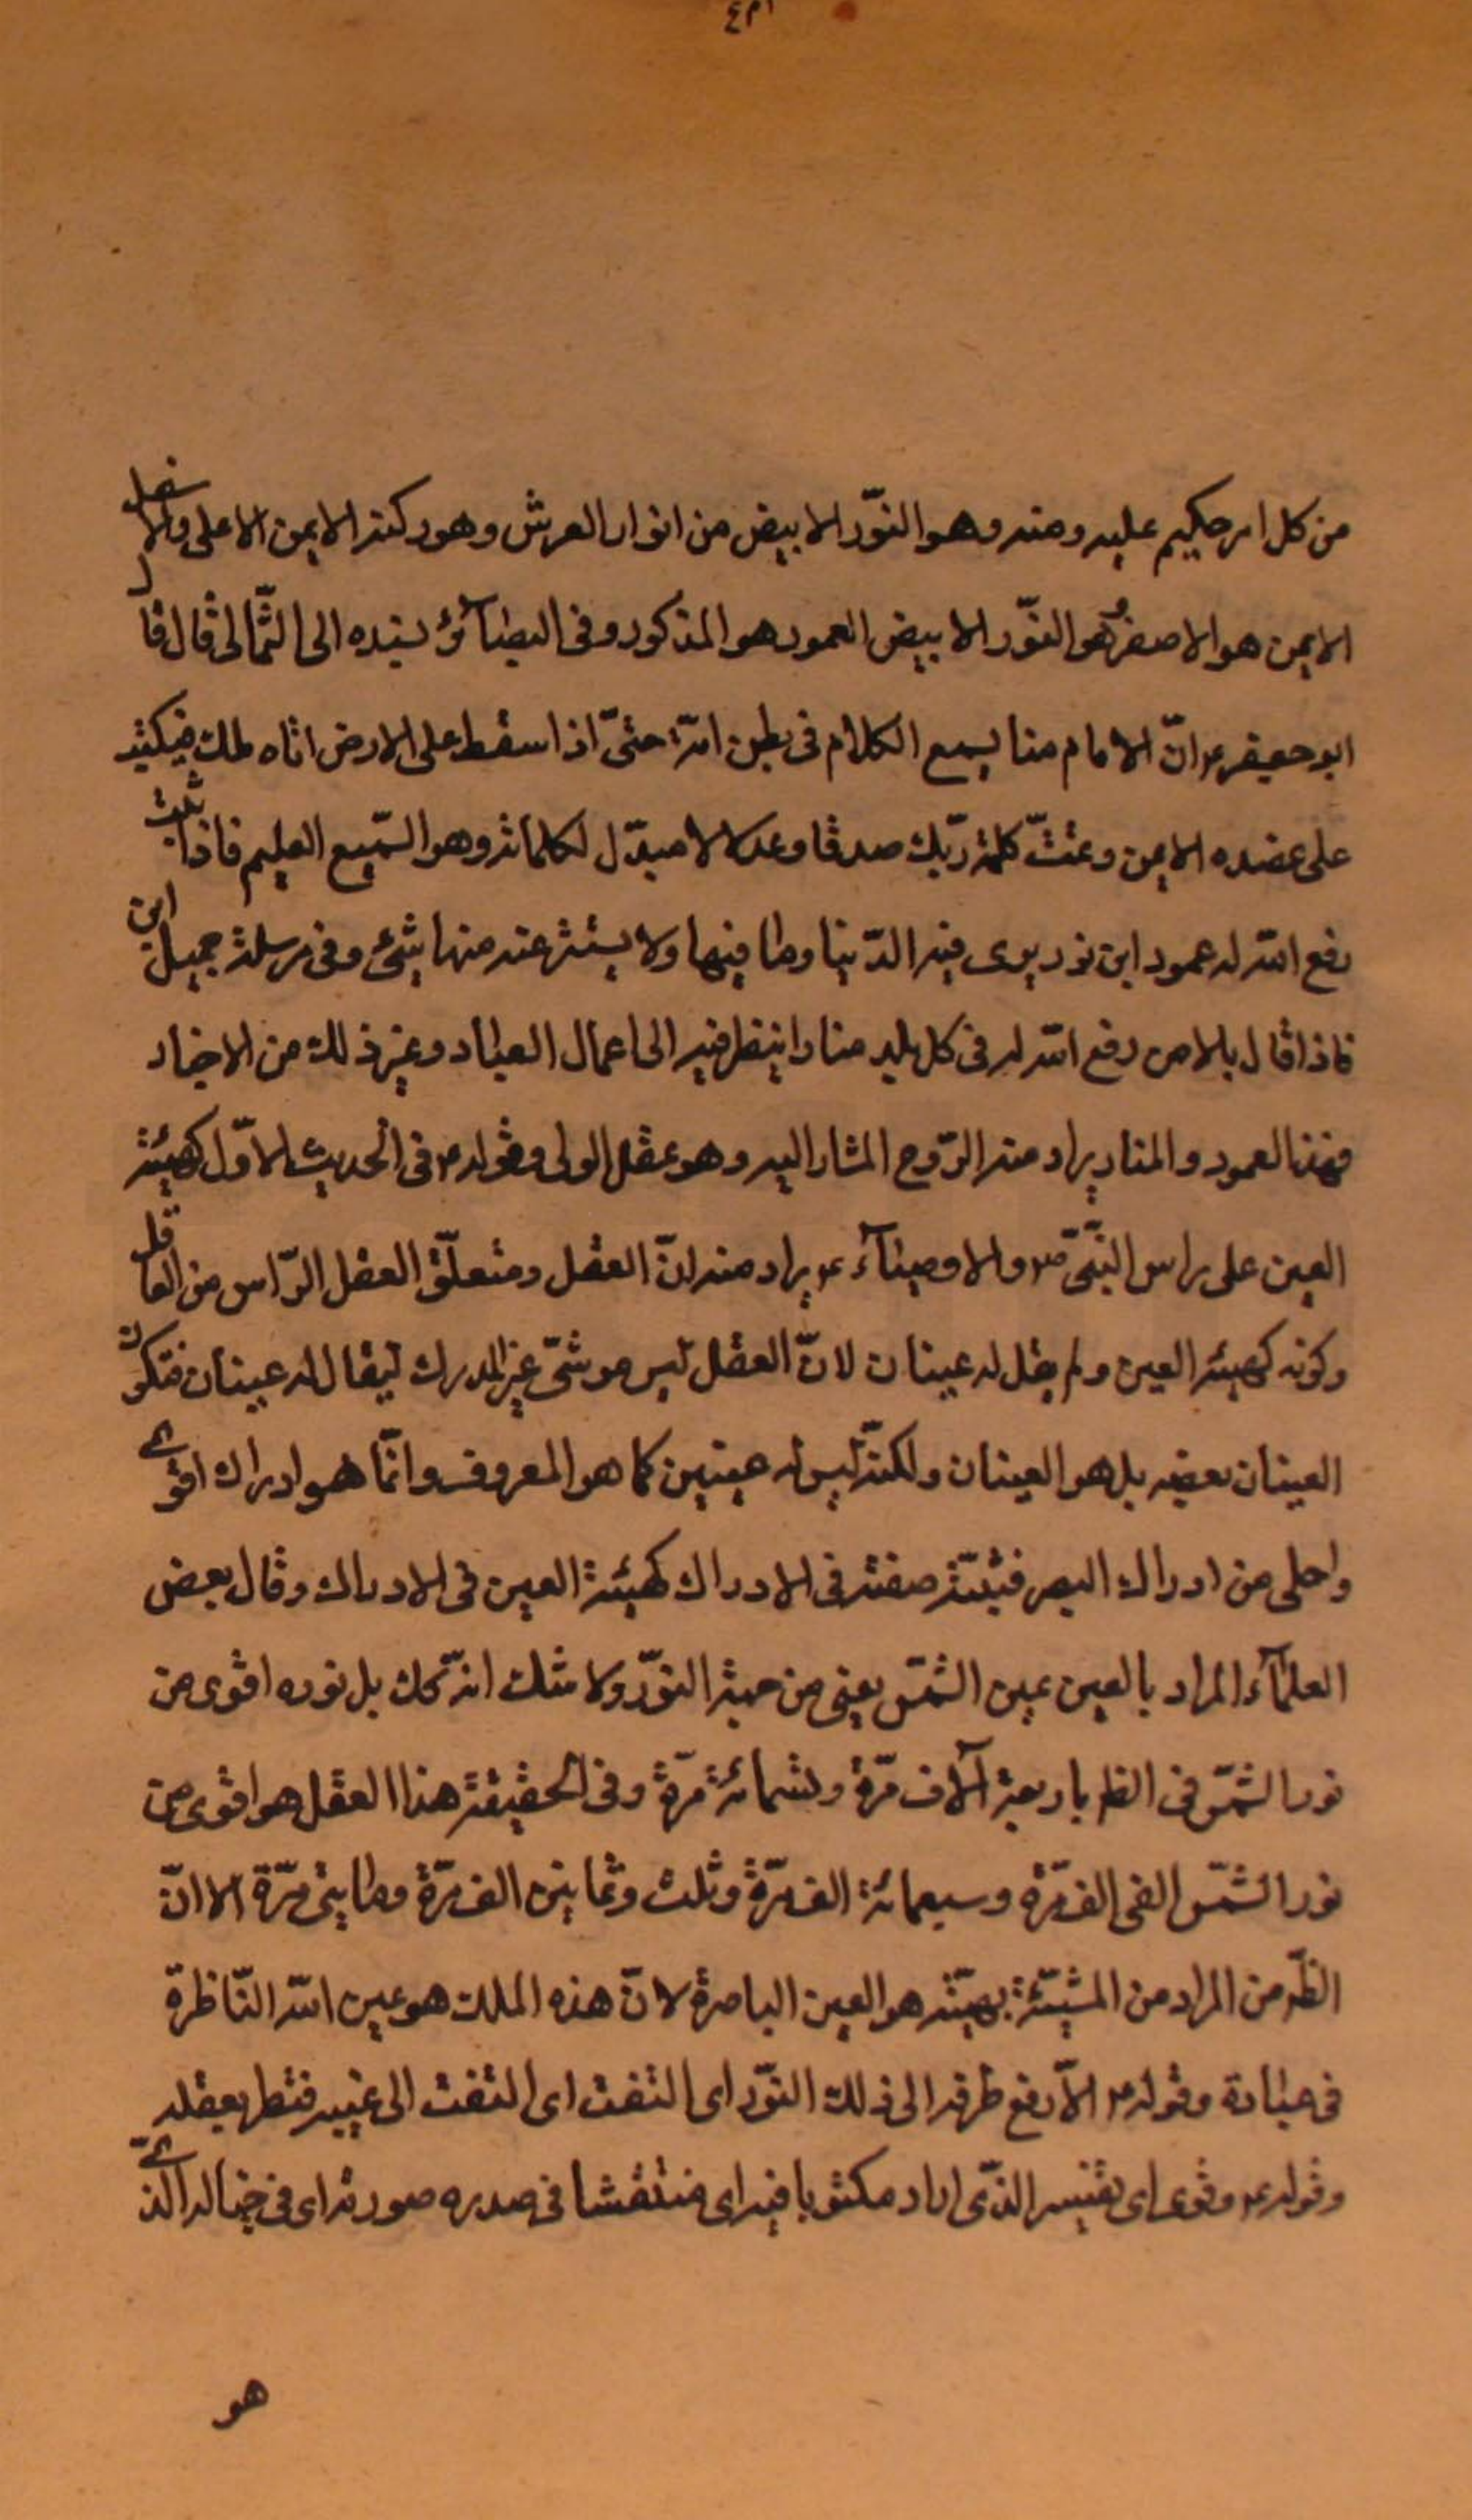 من كل امر حكيم عليه ومنه وهو النّور الابيض من انوار العرش وهو ركنه الايمن الاعلى والاسفل
الايمن هو الاصفر وهو النّور الابيض العمود هو المذكور وفى البصائر بسنده الى الثمالى قال قال
ابو جعفر ع انّ الامام منا يسمع الكلام فى بطن امّه حتىّ اذا سقط على الارض اتاه ملك فيكتب
على عضده الايمن وتمتّ كلمة ربّك صدقا وعدلا لا مبدّل لكلماته وهو السّميع العليم فاذا شبّ
رفع الله له عمود ابن نور يرى فيه الدّنيا وما فيها ولا يستتر عنه منها شئ وفى مرسلة جميل ابن
فاذا قال بالامر رفع الله له فى كل بلد منارا ينظر فيه الى اعمال العباد وغير ذلك من الاخبار
فهذا العمود والمنار يراد منه الرّوح المشار اليه وهو عقل الولى وقوله ع فى الحديث الاوّل كهيئة
العين على راس النّبىّ ص والاوصياء ع يراد منه انّ العقل ومتعلّق العقل الرّاس من العاقل
وكونه كهيئة العين ولم يقل له عينان لانّ العقل ليس هو شئ غير المدرك ليقال له عينان فتكون
العينان بعضه بل هو العينان ولكنّه ليس له عينين كما هو المعروف وانّما هو ادراك اقوى
واجلى من ادراك البصر فشبّه صفته فى الادراك كهيئة العين فى الادراك وقال بعض
العلماء المراد بالعين عين الشّمس يعنى من جهة النّور ولا شك انّه كك بل نوره اقوى من
نور الشّمس فى الظ باربعة آلاف مرّة وتسمائة مرّة وفى الحقيقة هذا العقل هو اقوى من
نور الشمّس الفى الف مرّة وسبعمائة الف مرّة وثلث وثمانين الف مرّة ومايتى مرّة الا انّ
الظّ من المراد من المشبّهة بهيئته هو العين الباصرة لانّ هذه الملك هو عين الله النّاظرة
فى عباده وقوله ع الاّ رفع طرفه الى ذلك النّور اى التفت اى التفت الى غيبه فنظر بعقله
وقوله ع وقوى اى بقنيسر الذّى اراد مكتوبا فيه اى منتقشا فى صدره صورته اى فى خياله الذّى
هو